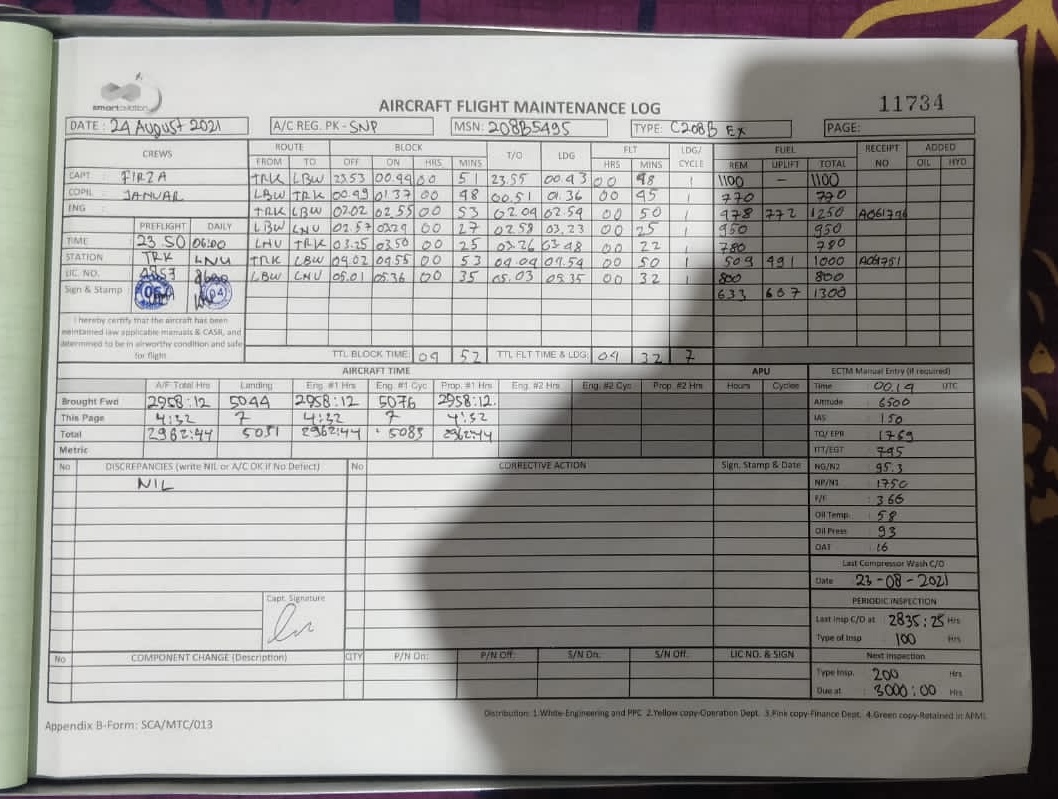 smartaviation
AIRCRAFT FLIGHT MAINTENANCE LOG 11734
DATE : 24 August 2021 A/C REG. PK - SNP MSN: 208B5495 TYPE: C208B EX PAGE:
CREWS ROUTE BLOCK T/O LDG FLT LDG/ CYCLE FUEL RECEIPT NO ADDED
FROM TO OFF ON HRS MINS HRS MINS REM UPLIFT TOTAL OIL HYD
CAPT : FIRZA TRK LBW 23.53 00.44 00 51 23.55 00.43 00 48 1 1100 - 1100
COPIL : JANUAR LBW TRK 00.49 01.37 00 48 00.51 01.36 00 45 1 770 770
ENG : TRK LBW 02.02 02.55 00 53 02.04 02.54 00 50 1 478 772 1250
PREFLIGHT DAILY LBW LNU 02.57 03.24 00 27 02.58 03.23 00 25 1 950 950
TIME 23 50 06:00 LNU TRK 03.25 03.50 00 25 03.26 03.48 00 22 1 780 780
STATION TRK LNU TRK LBW 04.02 04.55 00 53 04.04 04.54 00 50 1 509 491 1000 A061751
LIC. NO. LBW LNU 05.01 05.36 00 35 05.03 05.35 00 32 1 800 800
Sign & Stamp 633 667 1300
I hereby certify that the aircraft has been
maintained law applicable manuals & CASR, and
determined to be in airworthy condition and safe
for flight
TTL BLOCK TIME: 04 52 TTL FLT TIME & LDG: 04 32 7
AIRCRAFT TIME APU ECTM Manual Entry (if required)
A/F Total Hrs Landing Eng. #1 Hrs Eng. #1 Cyc Prop. #1 Hrs Eng. #2 Hrs Eng. #2 Cyc Prop. #2 Hrs Hours Cycles Time : 00.19 UTC
Brought Fwd 2958:12 5044 2958:12 5076 2958:12. Altitude : 6500
This Page 4:32 7 4:32 7 4:32 IAS : 150
Total 2962:44 5051 2962:44 5083 2962:44 TQ/ EPR : 1769
Metric ITT/EGT : 745
No DISCREPANCIES (write NIL or A/C OK if No Defect) No CORRECTIVE ACTION Sign, Stamp & Date NG/N2 : 95.3
NIL NP/N1 : 1750
F/F : 366
Oil Temp. : 58
Oil Press : 93
OAT : 16
Last Compressor Wash C/O
Date 23-08-2021
Capt. Signature PERIODIC INSPECTION
Last Insp C/O at : 2835:25 Hrs
Type of Insp : 100 Hrs
No COMPONENT CHANGE (Description) QTY P/N On: P/N Off: S/N On: S/N Off: LIC NO. & SIGN Next Inspection
Type Insp. : 200 Hrs
Due at : 3000:00 Hrs
Distribution: 1.White-Engineering and PPC 2.Yellow copy-Operation Dept. 3.Pink copy-Finance Dept. 4.Green copy-Retained in AFML
Appendix B-Form: SCA/MTC/013